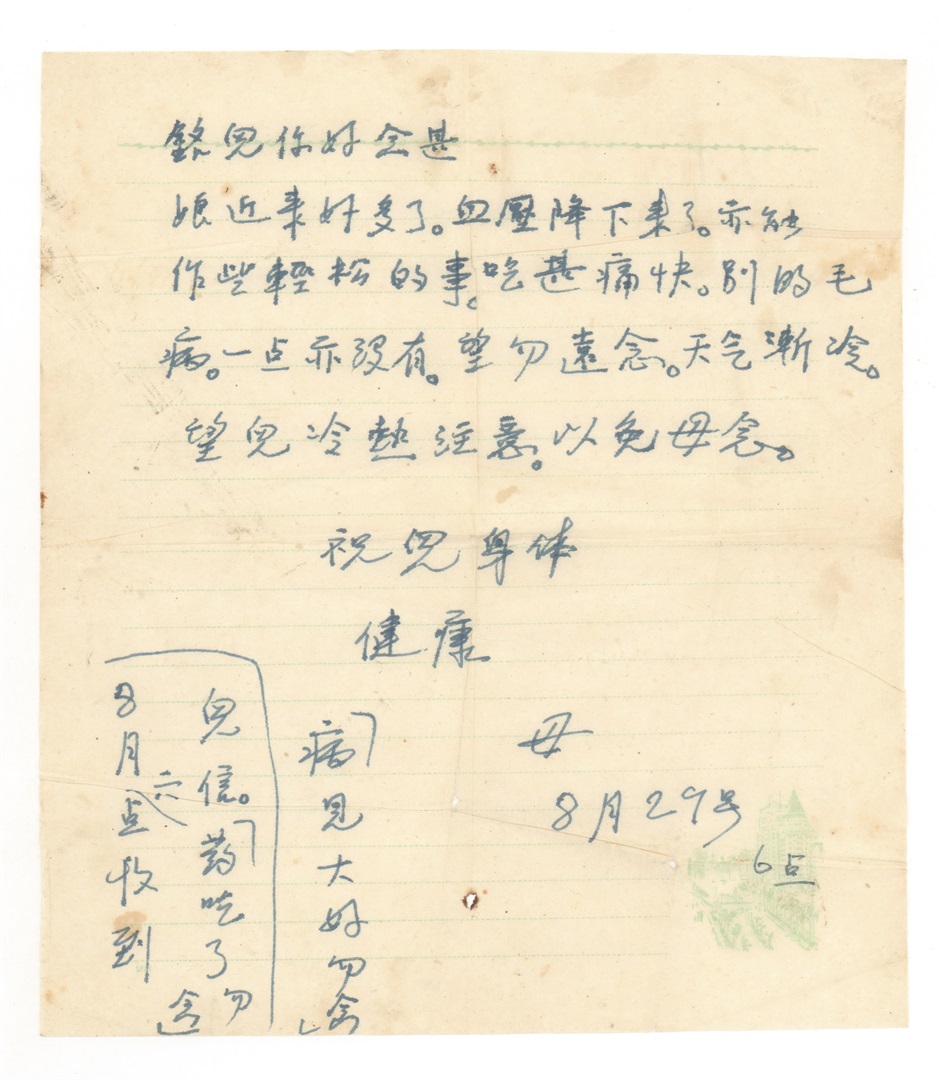 銘兒你好念甚
娘近来好多了。血壓降下来了。亦能
作些輕松的事。吃甚痛快。別的毛
病。一点亦沒有。望勿遠念。天气漸冷。
望兒冷熱注意。以免母念。
祝兒身体
健康
母
8月29号
6点
「病見大好勿念」
兒信。「药吃了勿念」
8月六点收到